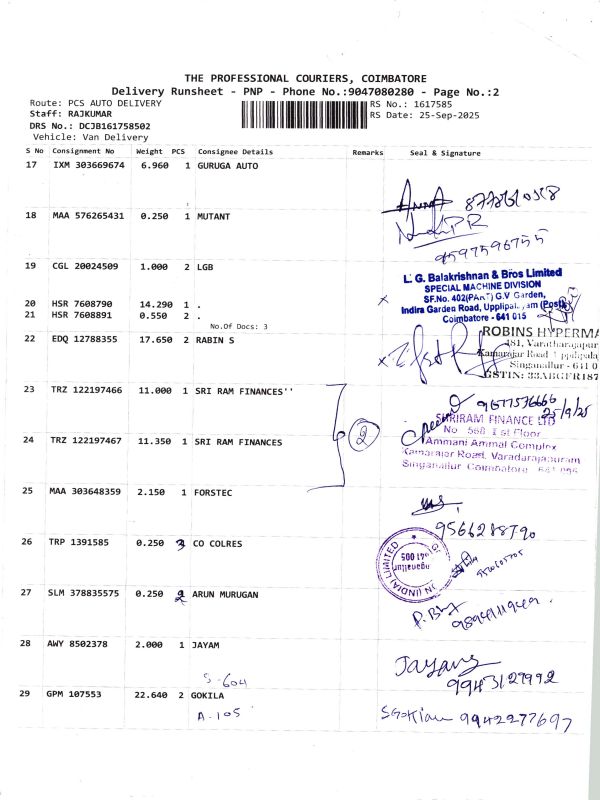 THE PROFESSIONAL COURIERS, COIMBATORE
Delivery Runsheet - PNP - Phone No.:9047080280 - Page No.:2
Route: PCS AUTO DELIVERY
RS No.: 1617585
Staff: RAJKUMAR
RS Date: 25-Sep-2025
DRS No.: DCJB161758502
Vehicle: Van Delivery
S No Consignment No Weight PCS Consignee Details Remarks Seal & Signature
17 IXM 303669674 6.960 1 GURUGA AUTO
18 MAA 576265431 0.250 1 MUTANT
9597596755
19 CGL 20024509 1.000 2 LGB
L. G. Balakrishnan & Bros Limited
SPECIAL MACHINE DIVISION
SF.No. 402(PART) G.V Garden,
Indira Garden Road, Upplipalayam (Post)
Coimbatore - 641 015
20 HSR 7608790 14.290 1 .
21 HSR 7608891 0.550 2 .
No.Of Docs: 3
22 EDQ 12788355 17.650 2 RABIN S
ROBINS HYPERMA
481, Varatharajapur
Kamarajar Road Uppilipala
Singanallur - 641 0
GSTIN: 33ABGFR187
23 TRZ 122197466 11.000 1 SRI RAM FINANCES''
9677536666
25/9/25
2
SHRIRAM FINANCE LTD
No 568 I st Floor
24 TRZ 122197467 11.350 1 SRI RAM FINANCES
Ammani Ammal Complex
Kamarajar Road, Varadarajapuram
Singanallur Coimbatore
25 MAA 303648359 2.150 1 FORSTEC
9566288790
26 TRP 1391585 0.250 3 CO COLRES
(INDIA) LIMITED
641 005
27 SLM 378835575 0.250 2 ARUN MURUGAN
9894111949
28 AWY 8502378 2.000 1 JAYAM
S-604
9943129992
29 GPM 107553 22.640 2 GOKILA
A-105
9942277697